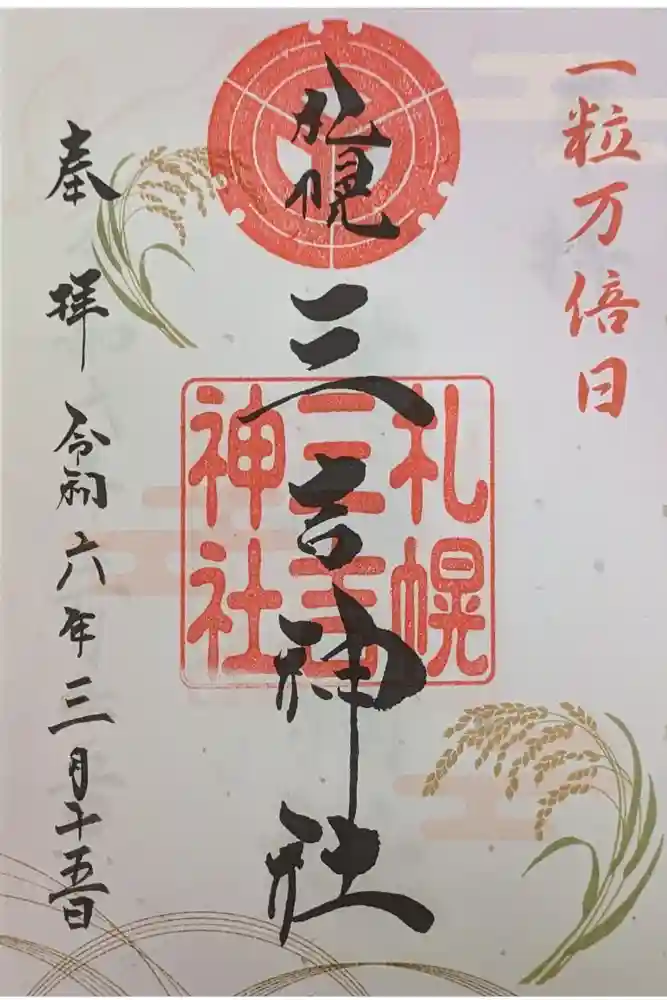 一粒万倍日
札幌
三吉神社
札幌
三吉
神社
奉拝
令和六年三月十五日